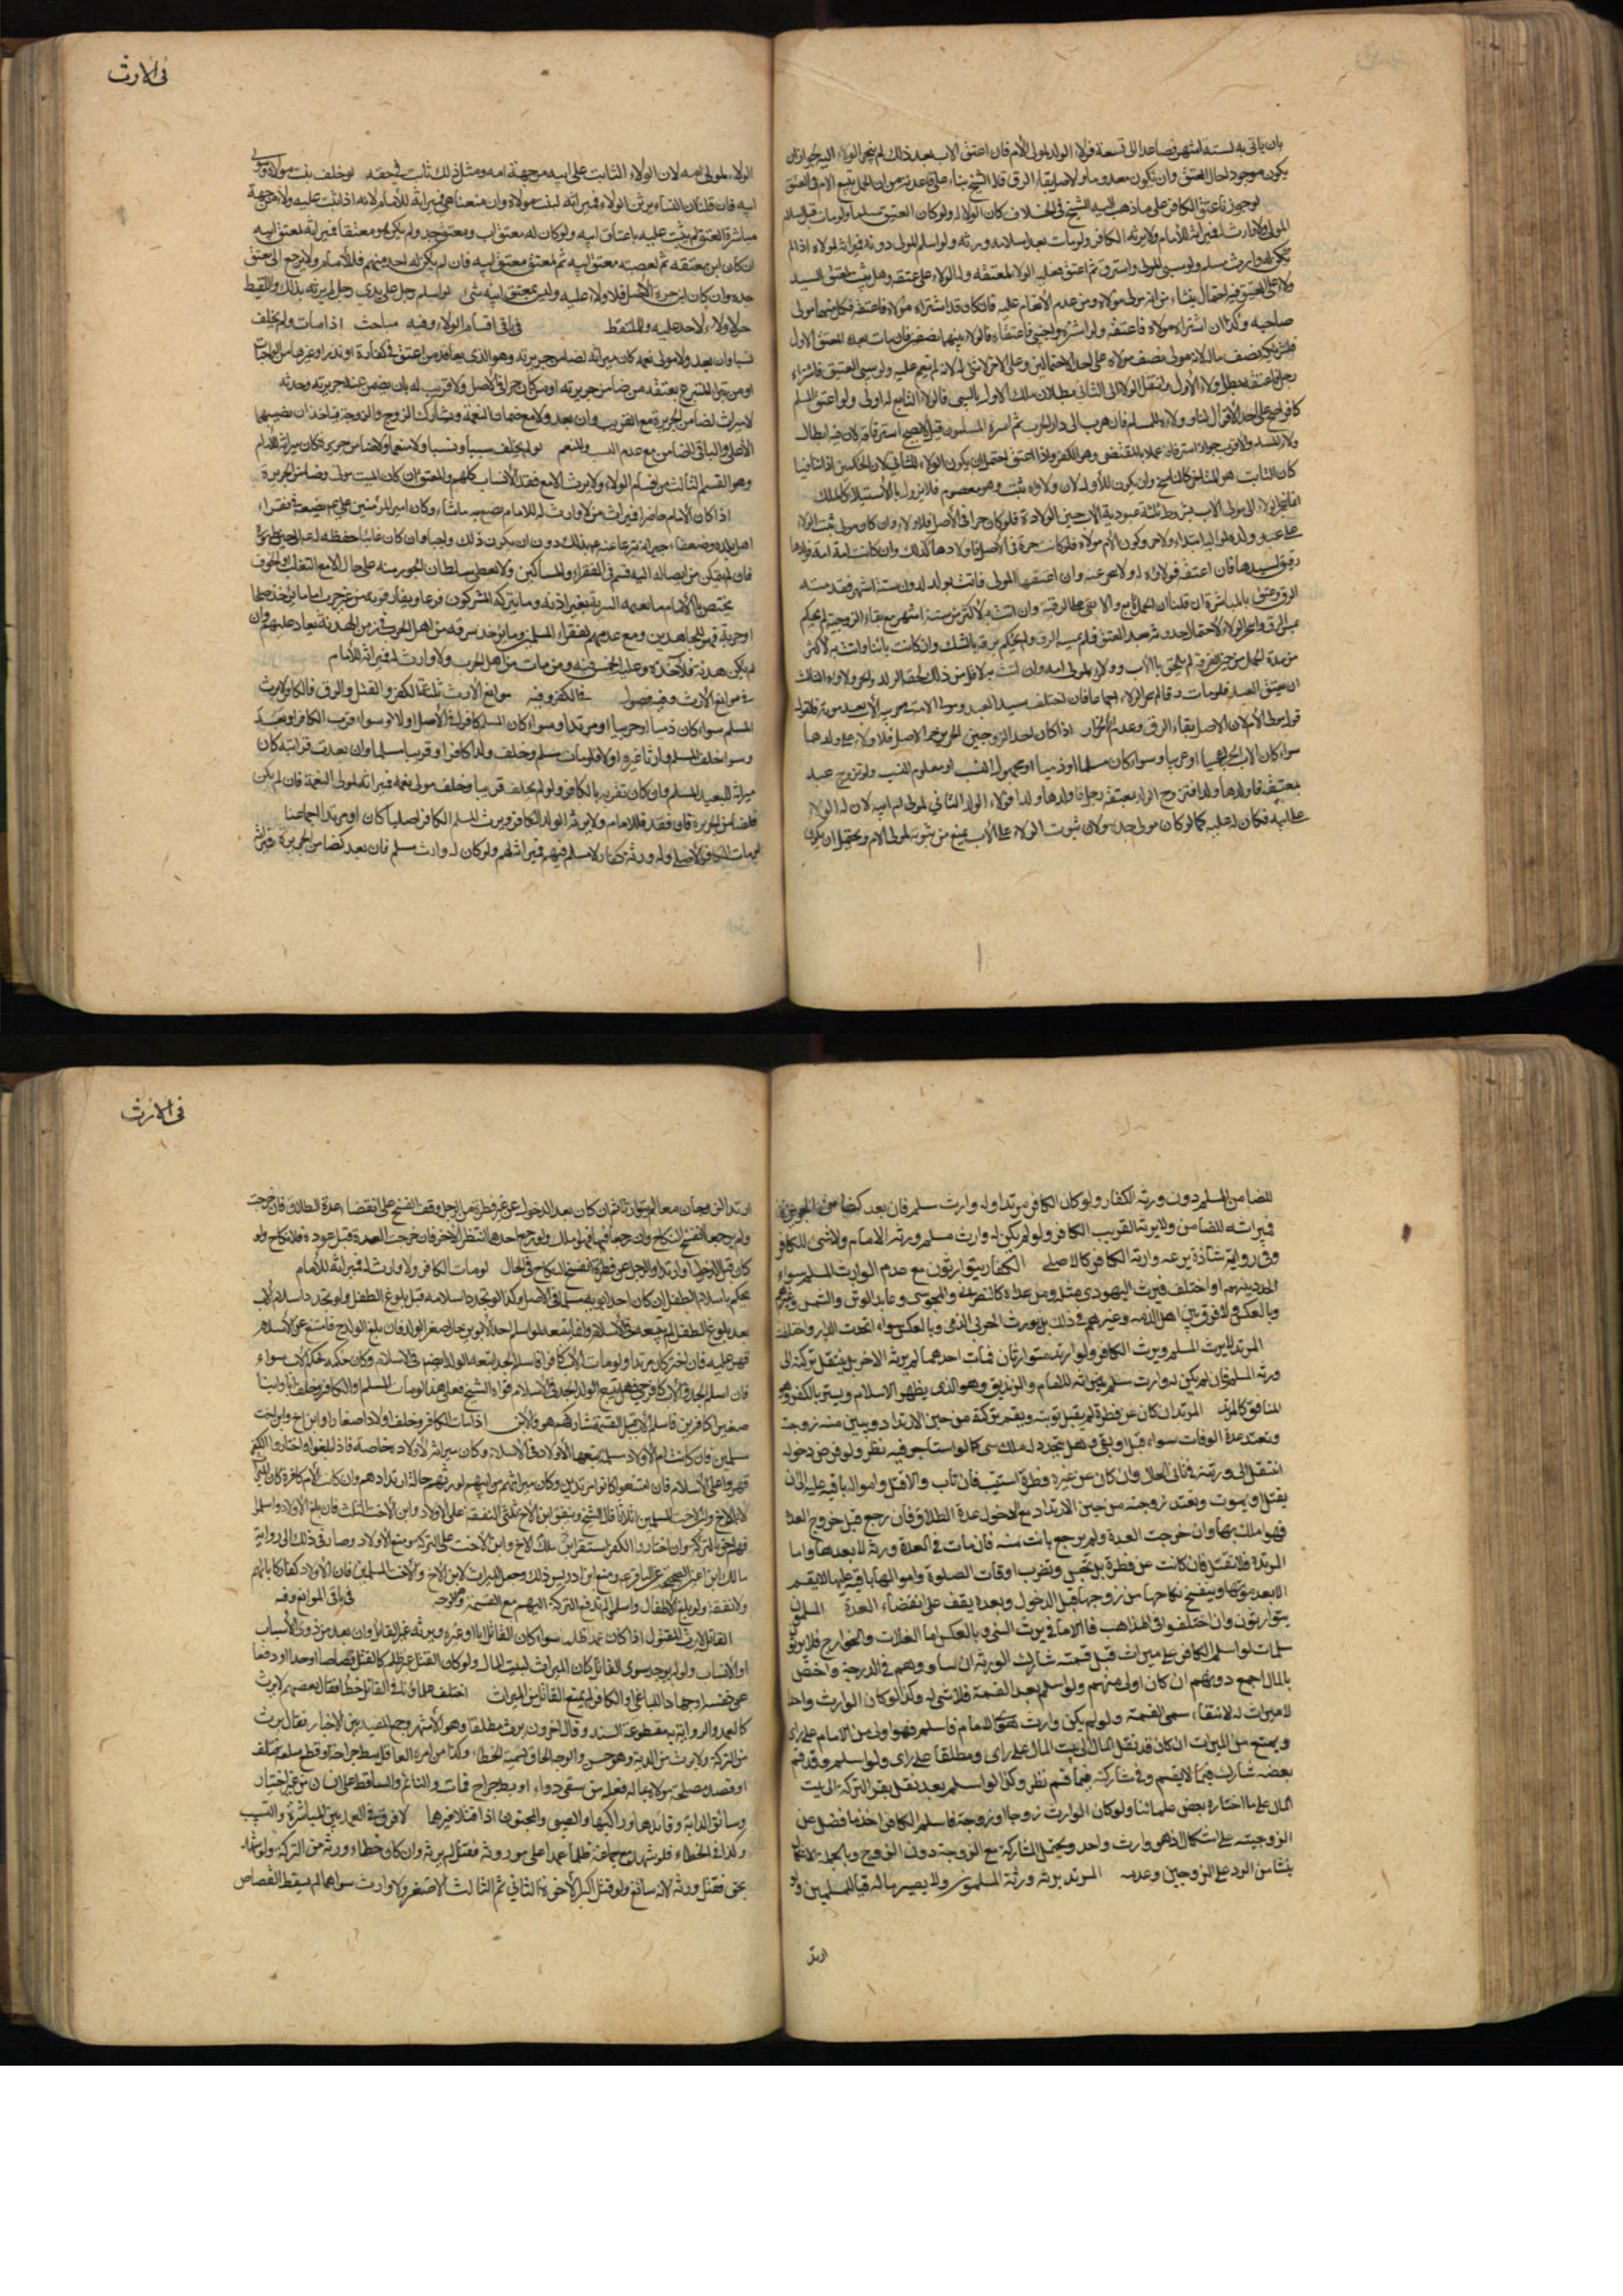 بان ياتى به لستة اشهر فصاعدا الى تسعة فولاء الولد لمولى الام فان اعتق الاب بعد ذلك لم ينجر الولاء اليه لجواز ان
يكون موجودا حال العتق وان يكون معدوما والاصل بقاء الرق قاله الشيخ بناء على قاعدته من ان الحمل يتبع الام فى العتق
لو جوزنا عتق الكافر على ما ذهب اليه الشيخ فى الخلاف كان الولاء له ولو كان العتيق مسلما ولو مات قبل اسلام
المولى ولا وارث له فميراثه للامام ولا يرثه الكافر ولو مات بعد اسلامه ورثه ولو اسلم المولى دونه فميراثه لمولاه اذا لم
يكن له وارث مسلم ولو سبى المولى واسترق ثم اعتق فعليه الولاء لمعتقه وله الولاء على عتيقه وهل يثبت لمعتق السيد
ولاء على العتيق فيه احتمال ينشاء من انه مولى مولاه ومن عدم الانعام عليه فان كان قد اشتراه مولاه فاعتقه فكل منهما مولى
صاحبه وكذا ان اشتراه مولاه فاعتقه ولو اشتراه واجنبى فاعتقاه فالولاء بينهما نصفين فان مات بعده المعتق الاول
فلشريكه نصف ماله لانه مولى نصف مولاه على احد الاحتمالين وعلى الاخر لا شئ له لانه لم ينعم عليه ولو سبى العتيق فاشتراه
رجل فاعتقه بطل ولاء الاول وانتقل الولاء الى الثانى لبطلان ملك الاول بالسبى فالولاء التابع له اولى ولو اعتق المسلم
كافرا صح على احد الاقوال لنا وولاؤه للمسلم فان هرب الى دار الحرب ثم اسره المسلمون قيل لا يصح استرقاقه لان فيه ابطال
ولاء المسلم والاقرب جواز استرقاقه عملا بالمقتضى وهو الكفر واذا اعتق احتمل ان يكون الولاء للثانى لان الحكمين اذا تنافيا
كان الثابت هو المتاخر كالناسخ وان يكون للاول لان ولاؤه ثبت وهو معصوم فلا يزول بالاستيلاء كالملك
انما ينجر الولاء الى مولى الاب بشروط ثلثة عبودية الاب حين الولادة فلو كان حرا فى الاصل فلا ولاء وان كان مولى ثبت الولاء
على ولده لمواليه ابتداء ولا جر وكون الام مولاة فلو كانت حرة فى الاصل فاولادها كذلك وان كانت امة فولدها
رقيق لسيدها فان اعتقه فولاؤه له ولا جر عنه وان اعتقها المولى فاتت بولد لدون ستة اشهر فقد مسه
الرق وعتق بالمباشرة ان قلنا ان الحمل تابع والا بقى على الرقية وان اتت به لاكثر من ستة اشهر مع بقاء الزوجية لم يحكم
بمس الرق وانجر الولاء لاحتمال حدوثه بعد العتق فلم يمسه الرق ولم يحكم برقه بالشك وان كانت بائنا واتت به لاكثر
من مدة الحمل من حين الفرقة لم يلحق بالاب وولاؤه لمولى امه وان اتت به لاقل من ذلك لحقه الولد وانجر ولاؤه الثالث
ان يعتق العبد فلو مات رقا لم ينجر الولاء اجماعا فان اختلف سيد العبد ومولى الامة فى حرية الاب بعد موته فالقول
قول مولى الام لان الاصل بقاء الرق وعدم الانجرار اذا كان احد الزوجين الحرين حر الاصل فلا ولاء على ولدهما
سواء كان الاب عربيا او عجميا وسواء كان مسلما او ذميا او مجهول النسب او معلوم النسب ولو تزوج عبد
بمعتقة فاولدها ولدا فتزوج الولد بمعتقة رجل فاولدها ولدا فولاء الولد الثانى لمولى ام ابيه لان له الولاء
على ابيه فكان له عليه كما لو كان مولى جده ولان ثبوت الولاء على الاب يمنع من ثبوته لمولى الام ويحتمل ان يكون
فى الارث
الولاء لمولى امه لان الولاء الثابت على ابيه من جهة امه ومثل ذلك ثابت فى حقه لو خلف بنت مولاه ومولى
ابيه فان قلنا ان النساء يرثن الولاء فميراثه لبنت مولاه وان منعناهن فميراثه للامام لانه اذا ثبت عليه ولاء من جهة
مباشرة العتق لم يثبت عليه باعتاق ابيه ولو كان له معتق اب ومعتق جد ولم يكن هو معتقا فميراثه لمعتق ابيه
ان كان ابن معتقه ثم لعصبة معتق ابيه ثم لمعتق معتق ابيه فان لم يكن له احد منهم فللامام ولا يرجع الى معتق
جده وان كان ابن حرة الاصل فلا ولاء عليه وليس لمعتق ابيه شئ لو اسلم رجل على يدى رجل لم يرثه بذلك واللقيط
حر لا ولاء لاحد عليه ولا الملتقط فى باقى اقسام الولاء وفيه مباحث اذا مات ولم يخلف
نسبا وان بعد ولا مولى نعمة كان ميراثه لضامن جريرته وهو الذى يعاقد من اعتق فى كفارة او نذر او غيرهما من الواجبات
او من تبرا المتبرع بعتقه من ضامن جريرته او من كان حرا فى الاصل ولا قريب له بان يضمن عنه جريرته وحدثه
لا ميراث لضامن الجريرة مع القريب وان بعد ولا مع ضمان النعمة ويشارك الزوج والزوجة فياخذان نصيبهما
الاعلى والباقى للضامن مع عدم النسب والمنعم لو لم يخلف سببا ونسبا ولا منعما ولا ضامن جريرة فكان ميراثه للامام
وهو القسم الثالث من اقسام الولاء ولا يرث الا مع فقد الانساب كلهم والمعتق ان كان الميت مولى وضامن الجريرة
اذا كان الامام حاضرا فميراث من لا وارث له للامام يضع به ما شاء وكان امير المؤمنين عليه السلم يضعه فى فقراء
اهل بلده وضعفاء جيرانه تبرعا عنه بذلك دون ان يكون ذلك واجبا وان كان غائبا حفظه له
فان لم يتمكن من ايصاله اليه قسم فى الفقراء والمساكين ولا يعطى سلطان الجور منه على حال الا مع التغلب او الخوف
يختص بالامام ما تغنمه السرية بغير اذنه وما يتركه المشركون فزعا ويفارقونه من غير حرب اما ما يؤخذ صلحا
او جزية فهو للمجاهدين ومع عدمهم لفقراء المسلمين وما يؤخذ سرقة من اهل الحرب فى زمن الهدنة يعاد عليهم وان
لم يكن هدنة فلآخذه وعليه الخمس فيه ومن مات من اهل الحرب ولا وارث له فميراثه للامام
فى موانع الارث وفيه فصول فى الكفر وفيه موانع الارث ثلثة الكفر والقتل والرق فالكافر لا يرث
المسلم سواء كان ذميا او حربيا او مرتدا وسواء كان المسلم كافرا فى الاصل او لا وسواء قرب الكافر او بعد
وسواء خلف المسلم وارثا غيره او لا فلو مات مسلم وخلف ولدا كافرا او قريبا مسلما وان بعدت قرابته كان
ميراثه للبعيد المسلم وان كان تقرب بالكافر ولو لم يخلف قريبا وخلف مولى نعمة فميراثه لمولى النعمة فان لم يكن
فلضامن الجريرة فان فقد فللامام ولا يرثه الولد الكافر ويرث المسلم الكافر اصليا كان او مرتدا اجماعا منا
لو مات الكافر الاصلى وله ورثة كفار لا مسلم فيهم فميراثه لهم ولو كان له وارث مسلم فان بعد كضامن الجريرة فميراثه
للضامن المسلم دون ورثته الكفار ولو كان الكافر مرتدا وله وارث مسلم فان بعد كضامن الجريرة
فميراثه للضامن ولا يرثه القريب الكافر ولو لم يكن له وارث مسلم ورثه الامام ولا شئ للكافر
وفى رواية شاذة يرثه وارثه الكافر كالاصلى الكفار يتوارثون مع عدم الوارث المسلم سواء
اتحد دينهم او اختلف فيرث اليهودى مثله ومن عداه كالنصرانى والمجوسى وعابد الوثن والشمس وغيرهم
وبالعكس ولا فرق بين اهل الذمة وغيرهم فى ذلك بل يورث الحربى الذمى وبالعكس سواء اتحدت الدار او اختلفت
المرتد لا يرث المسلم ويرث الكافر ولو ارتد متوارثان فمات احدهما لم يرثه الاخر بل ينتقل تركته الى
ورثته المسلمين فان لم يكن له وارث مسلم فميراثه للامام والزنديق وهو الذى يظهر الاسلام ويستر بالكفر وهو
المنافق كالمرتد المرتد ان كان عن فطرة لم يقبل توبته ويقسم تركته من حين الارتداد ويبين منه زوجته
وتعتد عدة الوفات سواء قتل او بقى وهل يتجدد له ملك شئ كما لو استاجر فيه نظر ولو فرض دخوله
انتقل الى ورثته فى ثانى الحال وان كان عن غير فطرة استتيب فان تاب والا قتل وامواله باقية عليه الى ان
يقتل او يموت وتعتد زوجته من حين الارتداد مع الدخول عدة الطلاق فان رجع قبل خروج العدة
فهو املك بها وان خرجت العدة ولم يرجع بانت منه فان مات فى العدة ورثته لا بعدها واما
المرتدة فلا تقتل فان كانت عن فطرة بل تحبس وتضرب اوقات الصلوة واموالها باقية عليها لا يقسم
الا بعد موتها وينفسخ نكاحها من زوجها قبل الدخول وبعده يقف على انقضاء العدة المسلمون
يتوارثون وان اختلفوا فى المذاهب فالامامى يرث السنى وبالعكس اما الغلات والخوارج فلا يرثون
مسلمات لو اسلم الكافر على ميراث قبل قسمته شارك الورثة ان ساووهم فى الدرجة واختص
بالمال اجمع دونهم ان كان اولى منهم ولو اسلم بعد القسمة فلا شئ له وكذا لو كان الوارث واحدا
لا ميراث له لانتفاء سمى القسمة ولو لم يكن وارث سوى الامام فاسلم فهو اولى من الامام على راى
ويمنع من الميراث ان كان قد نقل المال الى بيت المال على راى ومطلقا على راى ولو اسلم وقد قسم
بعضه شارك فيما لا يقسم وفى مشاركته فيما قسم نظر وكذا لو اسلم بعد نقل بعض التركة الى بيت
المال على ما اختاره بعض علمائنا ولو كان الوارث زوجا او زوجة فاسلم الكافر اخذ ما فضل عن
الزوجية على اشكال اذ هو وارث واحد ويحتمل المشاركة مع الزوجة دون الزوج وبالجملة الاشكال
ينشا من الرد على الزوجين وعدمه المرتد يرثه ورثته المسلمون ولا يصير ماله فيئا للمسلمين ولو
ارتد
فى الارث
ارتد الزوجان معا لم يتوارثا ثم ان كان بعد الدخول عن غير فطرة من الرجل وقف الفسخ على انقضاء عدة الطلاق فان خرجت
ولم يرجعا انفسخ النكاح وان رجعا فيها فهو املك ولو رجع احدهما انتظر الاخر فان خرجت العدة قبل عوده فلا نكاح ولو
كان قبل الدخول او ارتد الرجل عن فطرة انفسخ النكاح فى الحال لو مات الكافر ولا وارث له فميراثه للامام
يحكم باسلام الطفل ان كان احد ابويه مسلما فى الاصل وكذا لو تجدد اسلامه قبل بلوغ الطفل ولو تجدد اسلام الاب
بعد بلوغ الطفل لم يتبعه فى الاسلام وانما يتبعه لو اسلم احد الابوين حال صغر الولد فان بلغ الولد فامتنع عن الاسلام
قهر عليه فان اختر كان مرتدا ولو مات الاب كافرا فاسلم الجد تبعه الولد ايضا فى الاسلام وكان حكمه حكم الاب سواء
فان اسلم الجد والاب كافر حى فهل يتبع الولد الجد فى الاسلام قواه الشيخ فعلى هذا لو مات المسلم والكافر وخلف ابا وابنا
صغيرا كافرين فاسلم الاب قبل القسمة شاركهم هو والابن اذا مات الكافر وخلف اولادا صغارا وابن اخ وابن اخت
مسلمين فان كانت ام الاولاد مسلمة تبعها الاولاد فى الاسلام وكان ميراثه للاولاد خاصة فاذا بلغوا واختاروا الكفر
قهروا على الاسلام فان امتنعوا كانوا مرتدين وكان ميراثهم من ابيهم لورثتهم حالة ارتدادهم وان كانت الام كافرة كان الميراث
لابن الاخ وابن الاخت المسلمين اثلاثا قال الشيخ وينفق ابن الاخ ثلثى النفقة على الاولاد وابن الاخت الثلث فان بلغ الاولاد واسلموا
فهم احق بالتركة وان اختاروا الكفر استقر ملك ابن الاخ وابن الاخت على التركة ومنع الاولاد وصار فى ذلك الى رواية
مالك بن اعين الصحيحة عن الباقر ع ومنع ابن ادريس ذلك وجعل الميراث لابن الاخ والاخت المسلمين فان الاولاد كفار كابائهم
ولا نفقة ولو بلغ الاطفال واسلموا لم تدفع التركة اليهم مع القسمة وله وجه فى باقى الموانع وفيه
القاتل لا يرث المقتول اذا كان عمدا ظلما سواء كان القاتل ابا او غيره ويرثه غير القاتل وان بعد من ذوى الاسباب
او الانساب ولو لم يوجد سوى القاتل كان الميراث لبيت المال ولو كان القتل غير ظلم كالقتل قصاصا او حدا او دفعا
عن نفسه او جهادا للباغى او الكافر لم يمنع القاتل من الميراث اختلف علماؤنا فى القاتل خطا فقال بعضهم لا يرث
كالعمد والرواية به مقطوعة السند وقال اخرون يرث مطلقا وهو الاشهر وجمع المفيد بين الاخبار فقال يرث
من التركة ولا يرث من الدية وهو حسن والوجه الحاق شبيه الخطاء وكذا من امره العاقل ببط جراحة او قطع سلعة فتلف
او قصد مصلحة مولاه بما له فعله من سقى دواء او بط جراح فمات والنائم والساقط على انسان من غير اختيار
وسائق الدابة وقائدها وراكبها والصبى والمجنون اذا قتلا غيرهما لا فرق فى العمد بين المباشرة والتسبيب
وكذا فى الخطاء فلو شهد مع جماعة ظلما عمدا على موروثه فقتل لم يرثه وان كان خطاء ورثه من التركة ولو شهد
بحق فقتل ورثه لانه سائغ ولو قتل اكبر الاخوة الثانى ثم الثالث الاصغر ولا وارث سواهما لم يسقط القصاص